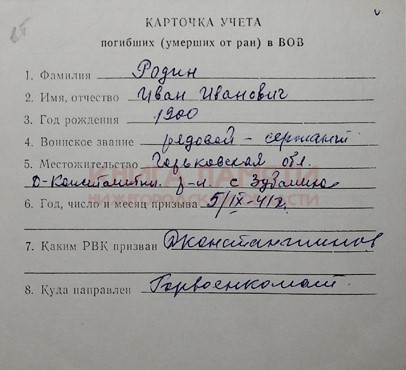 КАРТОЧКА УЧЕТА
погибших (умерших от ран) в ВОВ
1. Фамилия Родин
2. Имя, отчество Иван Иванович
3. Год рождения 1900
4. Воинское звание рядовой - сержант
5. Местожительство Горьковская обл.
Д-Константин. р-н. с Зубанино
КНИГА ПАМЯТИ
НИЖЕГОРОДСКОЙ ОБЛАСТИ
6. Год, число и месяц призыва 5/IX-41г.
7. Каким РВК призван Дконстантинов
8. Куда направлен Горвоенкомат.